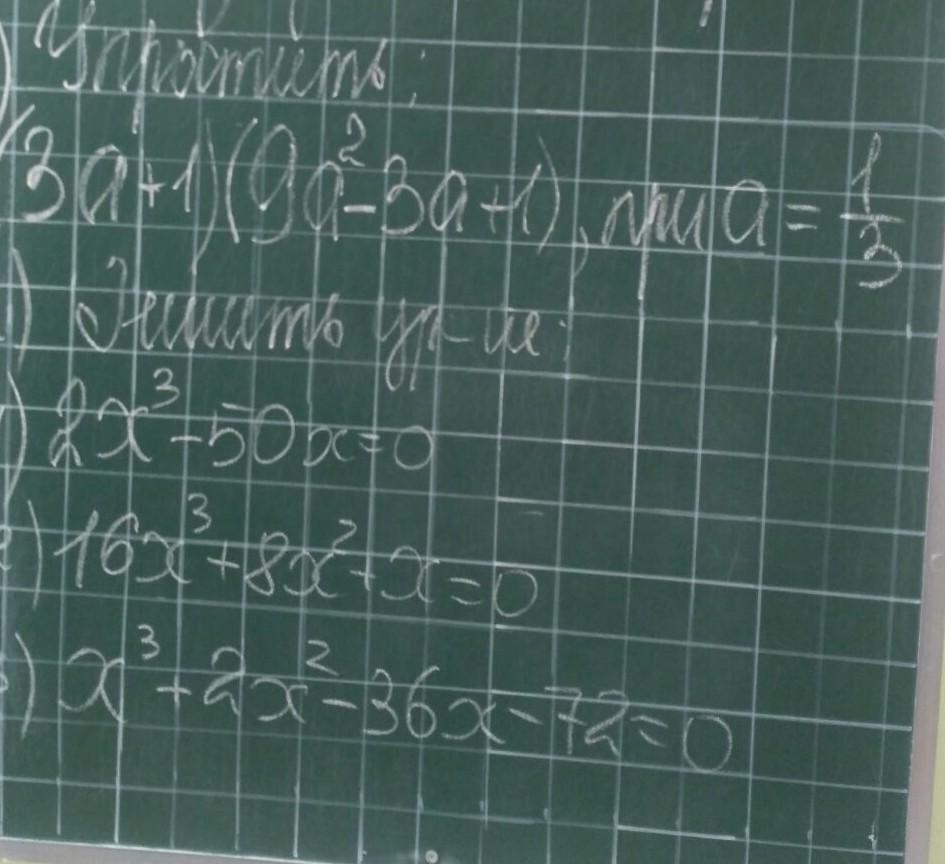 ) Упростить:
(3a+1)(9a²-3a+1), при a = 1/3
) Решить ур-ие:
) 2x³-50x=0
) 16x³+8x²+x=0
) x³+2x²-36x-72=0